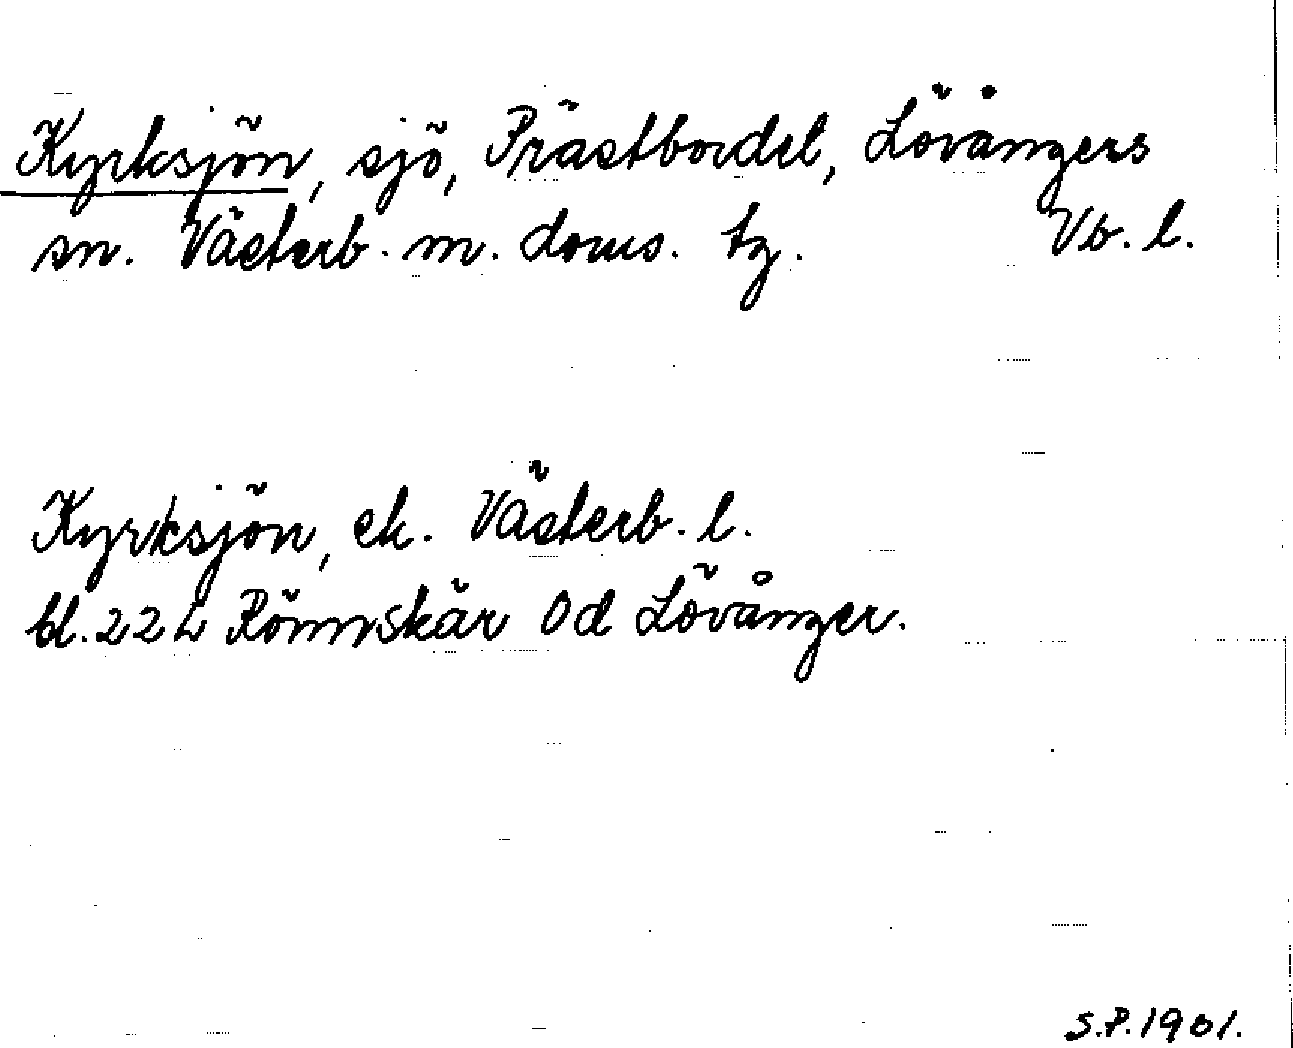 Kyrksjön, sjö, Prästbordet, Lövångers
sn. Västerb. m. doms. tg. Vb. l.
Kyrksjön, ek. Västerb. l.
bl. 22 L Rönnskär Od Lövånger.
S.P. 1901.